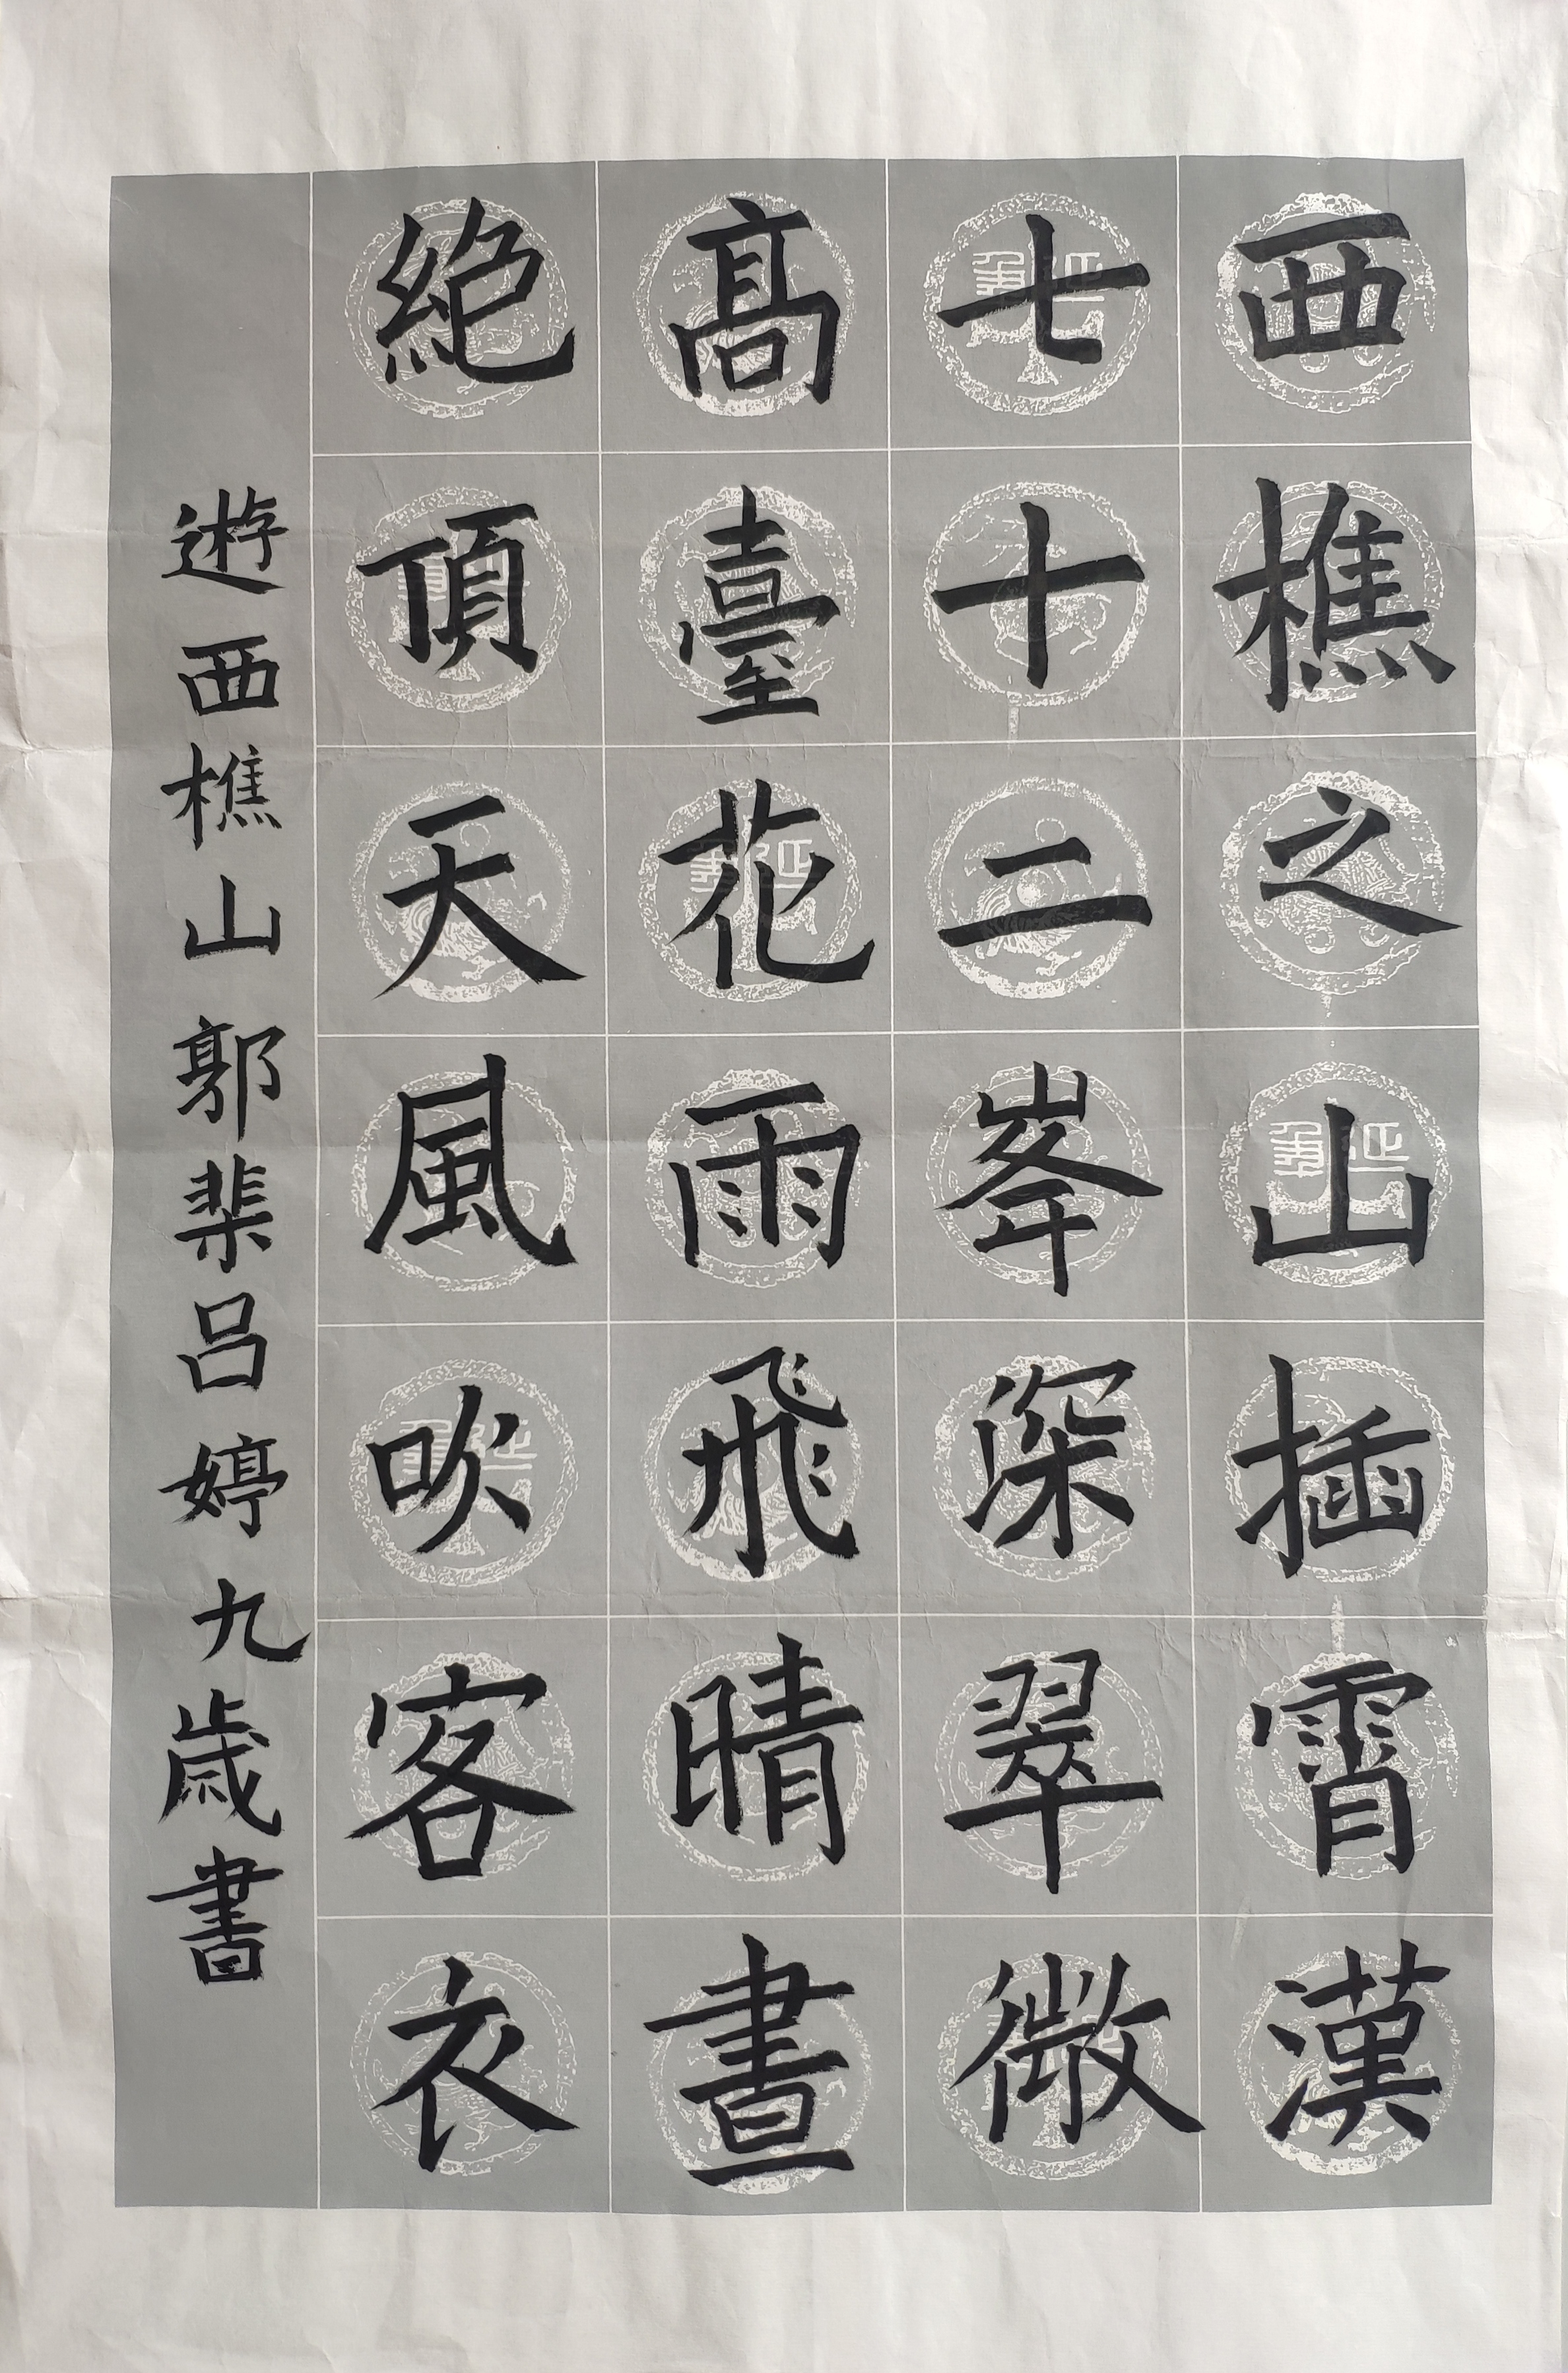 西樵之山插霄漢
七十二峯深翠微
高臺花雨飛晴晝
絕頂天風吹客衣
遊西樵山郭棐呂婷九歲書